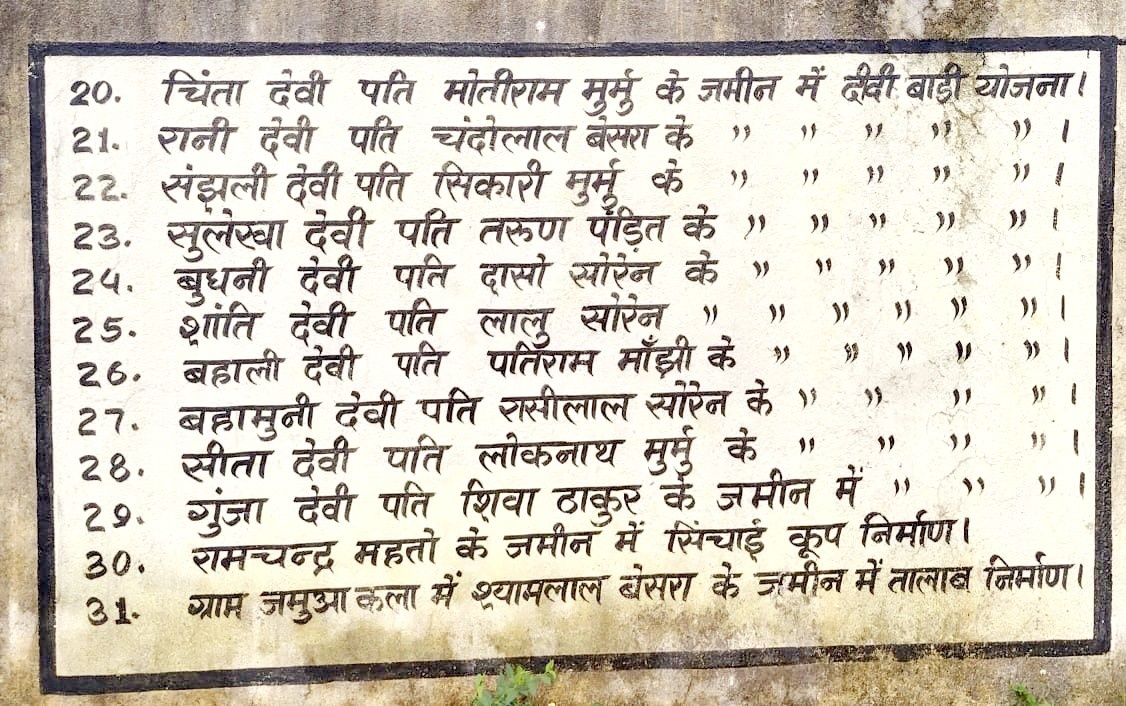 20. चिंता देवी पति मोतीराम मुर्मु के जमीन में दीदी बाडी योजना।
21. रानी देवी पति चंदोलाल बेसरा के " " " " " ।
22. संझली देवी पति सिकारी मुर्मु के " " " " " ।
23. सुलेखा देवी पति तरुण पंड़ित के " " " " " ।
24. बुधनी देवी पति दासो सोरेन के " " " " " ।
25. शांति देवी पति लालु सोरेन " " " " " " ।
26. बहाली देवी पति पतिराम माँझी के " " " " " ।
27. बहामुनी देवी पति रासीलाल सोरेन के " " " " ।
28. सीता देवी पति लोकनाथ मुर्मु के " " " " ।
29. गुंजा देवी पति शिवा ठाकुर के जमीन में " " " ।
30. रामचन्द्र महतो के जमीन में सिंचाई कूप निर्माण।
31. ग्राम जमुआ कला में श्यामलाल बेसरा के जमीन में तालाब निर्माण।